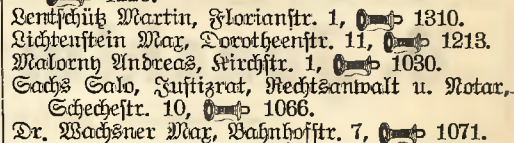 Lentschütz Martin, Florianstr. 1, 1310.
Lichtenstein Max, Dorotheenstr. 11, 1213.
Malorny Andreas, Kirchstr. 1, 1030.
Sachs Salo, Justizrat, Rechtsanwalt u. Notar,
Schechestr. 10, 1066.
Dr. Wachsner Max, Bahnhofstr. 7, 1071.